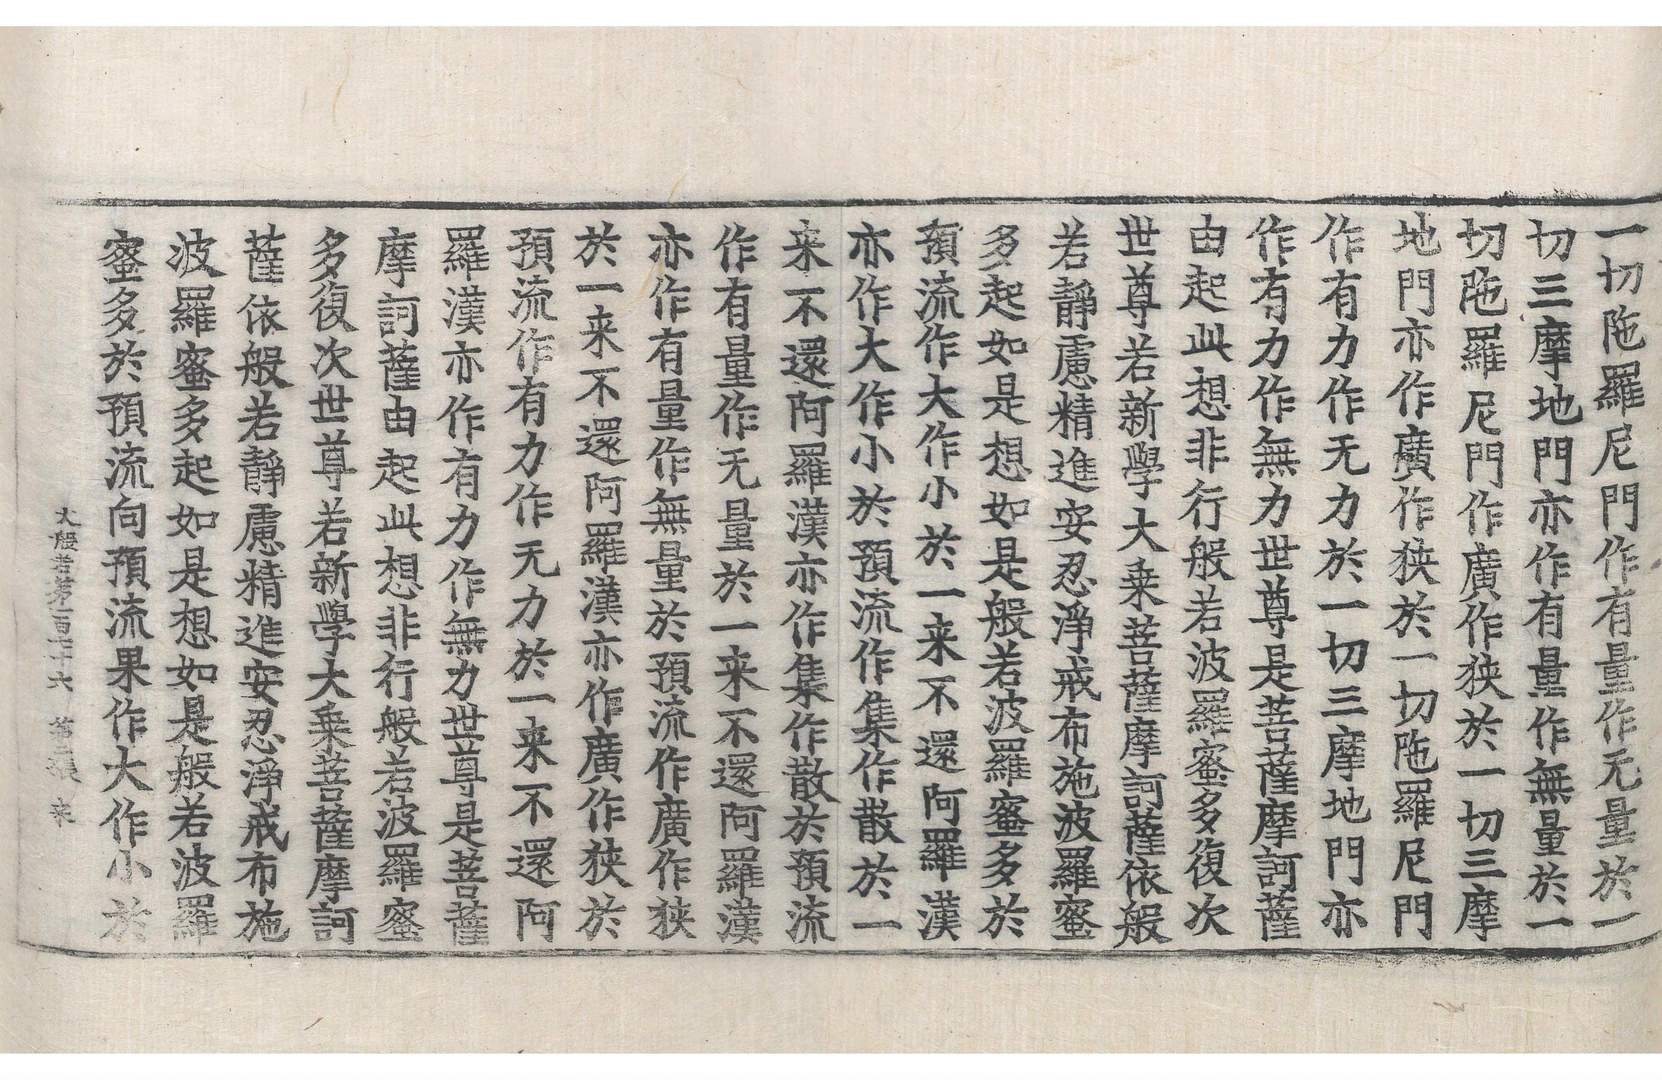 一切陁羅尼門作有量作无量於一
切三摩地門亦作有量作無量於一
切陁羅尼門作廣作狹於一切三摩
地門亦作廣作狹於一切陁羅尼門
作有力作无力於一切三摩地門亦
作有力作無力世尊是菩薩摩訶薩
由起此想非行般若波羅蜜多復次
世尊若新學大乗菩薩摩訶薩依般
若靜慮精進安忍淨戒布施波羅蜜
多起如是想如是般若波羅蜜多於
預流作大作小於一来不還阿羅漢
亦作大作小於預流作集作散於一
来不還阿羅漢亦作集作散於預流
作有量作无量於一来不還阿羅漢
亦作有量作無量於預流作廣作狹
於一来不還阿羅漢亦作廣作狹於
預流作有力作无力於一来不還阿
羅漢亦作有力作無力世尊是菩薩
摩訶薩由起此想非行般若波羅蜜
多復次世尊若新學大乗菩薩摩訶
薩依般若靜慮精進安忍淨戒布施
波羅蜜多起如是想如是般若波羅
蜜多於預流向預流果作大作小於
大般若第一百七十六 第二張 来